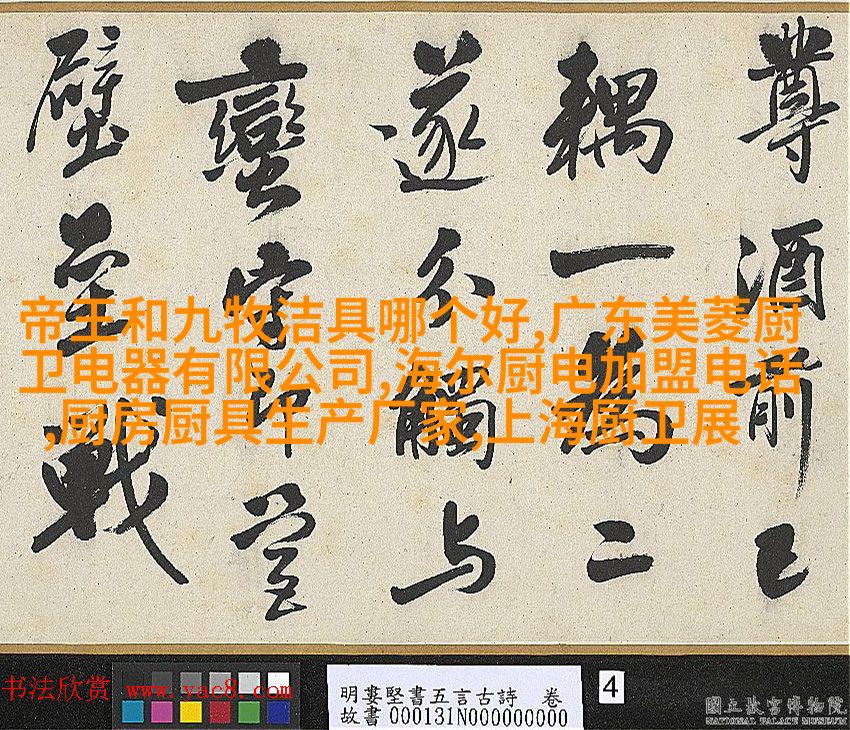 尊酒前已
耦一為二
遂分觸与
蠻即營
壁壘戰
帝王和九牧洁具哪个好,广东美菱厨
卫电器有限公司,海尔厨电加盟电话
,厨房厨具生产厂家,上海厨卫展
书法欣赏 www.yac8.com
明婁堅書五言古詩 卷
故書000131N000000000
4
國立故宮博物院
NATIONAL PALACE MUSEUM